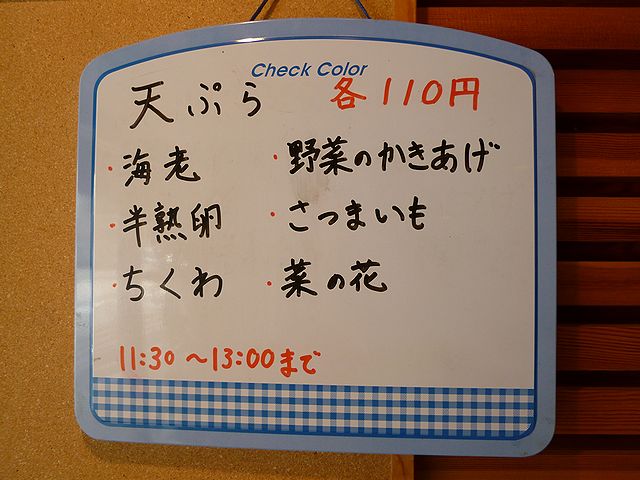 Check Color
天ぷら 各110円
・海老 ・野菜のかきあげ
・半熟卵 ・さつまいも
・ちくわ ・菜の花
11:30～13:00まで